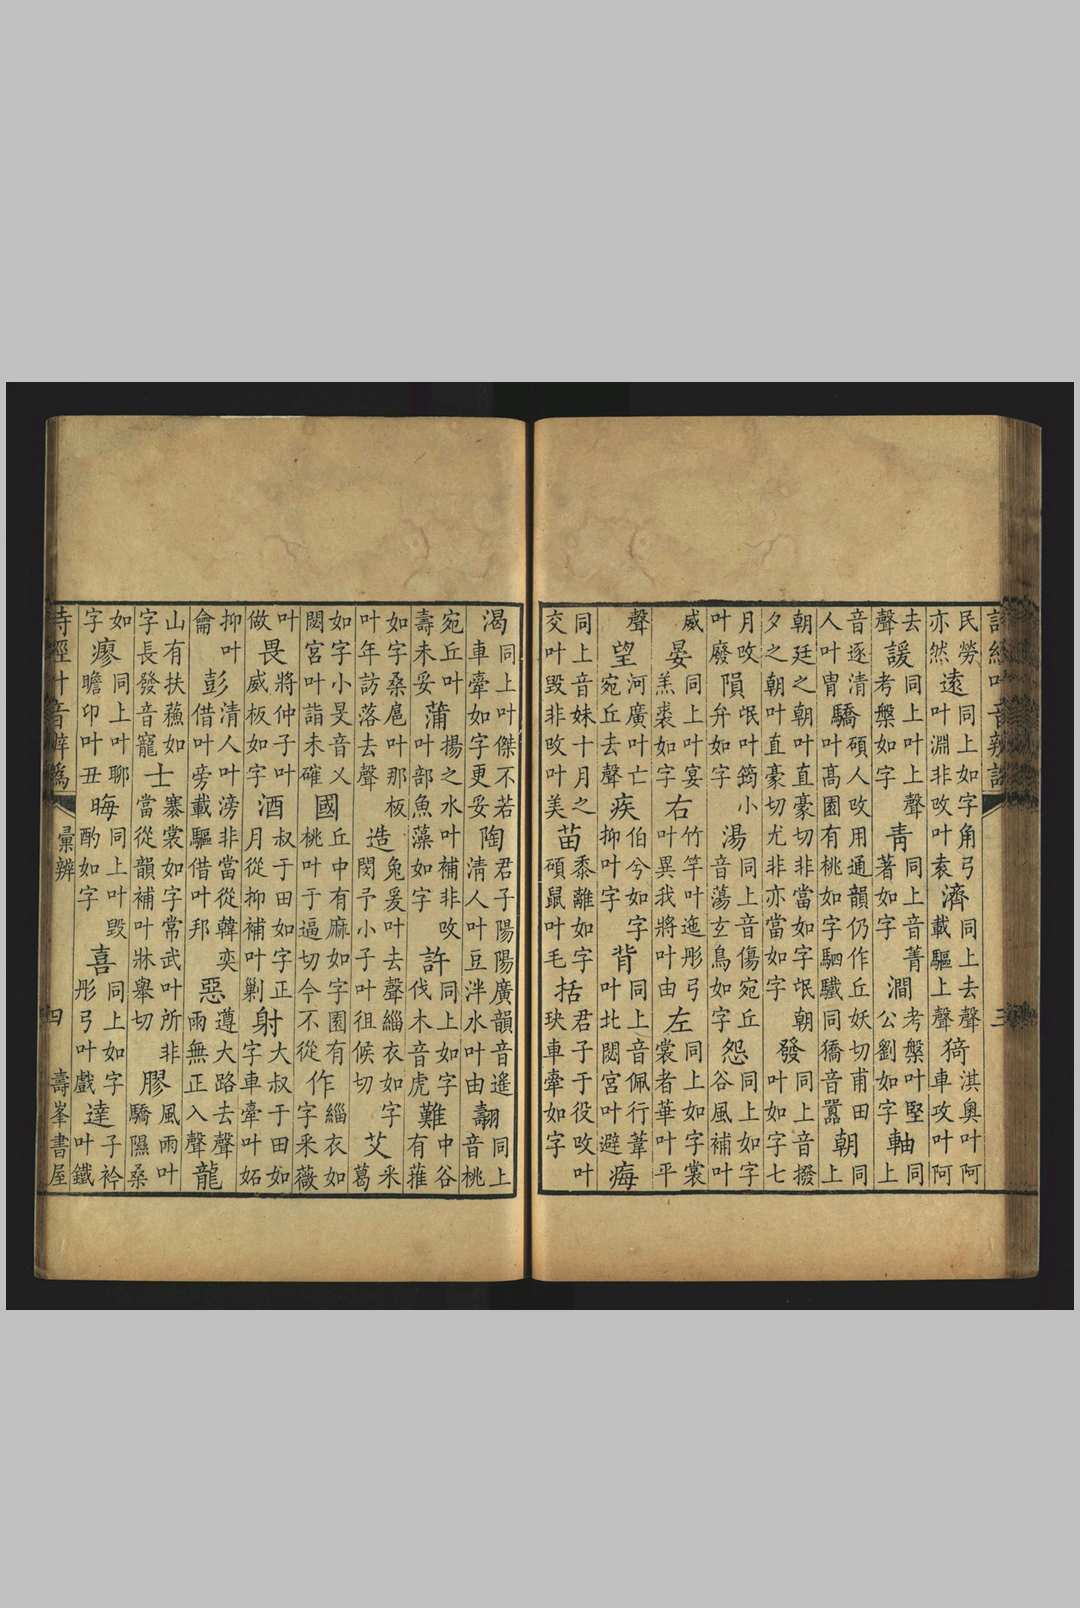 詩經叶音辨譌　三
民勞亦然遠同上如字角弓叶淵非攺叶袁濟同上去聲載驅上聲猗淇奧叶阿車攻叶阿
去聲諼同上叶上聲考槃如字青同上音菁著如字澗考槃叶堅公劉如字軸同上
音逐清人叶胄驕碩人攺用通韻仍作丘妖切甫田叶高園有桃如字駟驖同獢音囂朝同上
朝廷之朝叶直豪切非當如字氓朝夕之朝叶直豪切尤非亦當如字發同上音撥叶如字七
月攺叶廢隕氓叶筠小弁如字湯同上音傷宛丘音蕩玄鳥如字怨同上如字谷風補叶
威晏同上叶宴羔裘如字右竹竿叶迤彤弓叶異我將叶由左同上如字裳裳者華叶平
聲望河廣叶亡宛丘去聲疾伯兮如字抑叶字背同上音佩行葦叶北閟宮叶避痗
同上音妹十月之交叶毁非攺叶美苗黍離如字碩鼠叶毛括君子于役攺叶玦車舝如字
渴同上叶傑不若車舝如字更妥陶君子陽陽廣韻音遙清人叶豆泮水叶由翿同上音桃
宛丘叶壽未妥蒲揚之水叶補非攺叶部魚藻如字許同上如字伐木音虎難中谷有蓷
如字桑扈叶那板叶年訪落去聲造兔爰叶去聲緇衣如字閔予小子叶徂候切艾采葛
如字小旻音乂閟宮叶詣未確國丘中有麻如字園有桃叶于逼切今不從作緇衣如字采薇
叶做畏將仲子叶威板如字酒叔于田如字正月從抑補叶剿射大叔于田如字車舝叶妬
抑叶龠彭清人叶滂非當從韓奕借叶旁載驅借叶邦惡遵大路去聲雨無正入聲龍
山有扶蘓如字長發音寵士褰裳如字常武叶所非當從韻補叶牀舉切膠風雨叶驕隰桑
如字瘳同上叶聊瞻卬叶丑晦同上叶毁酌如字喜同上如字彤弓叶戲達子衿叶鐵
詩經叶音辨譌　彙辨　四　壽峯書屋